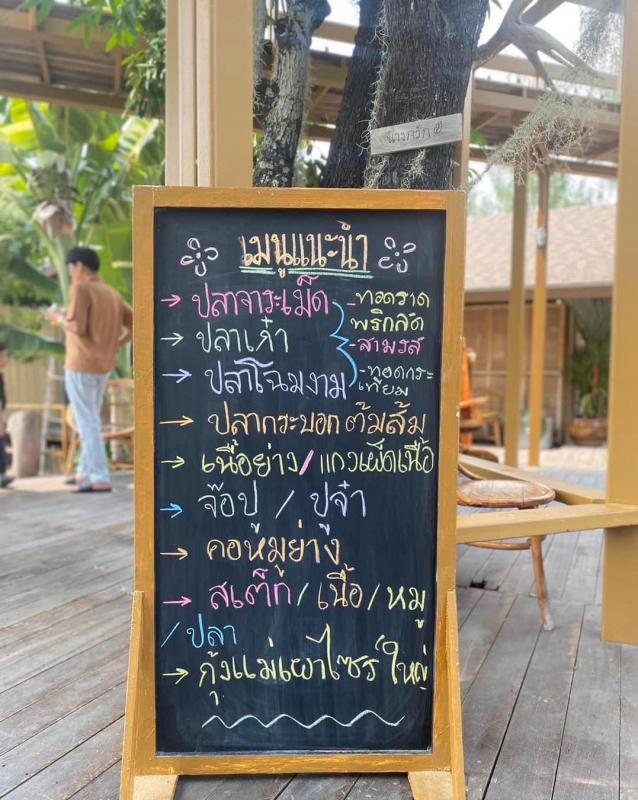 นางกวัก
เมนูแนะนำ
→ ปลาจาระเม็ด -ทอดราดพริกสด
→ ปลาเก๋า -สามรส
→ ปลาโฉมงาม -ทอดกระเทียม
→ ปลากระบอกต้มส้ม
→ เนื้อย่าง / แกงเผ็ดเนื้อ
→ จ๊อปู / ปูจ๋า
→ คอหมูย่าง
→ สเต็ก / เนื้อ / หมู
/ ปลา
→ กุ้งแม่เผาไซร์ใหญ่